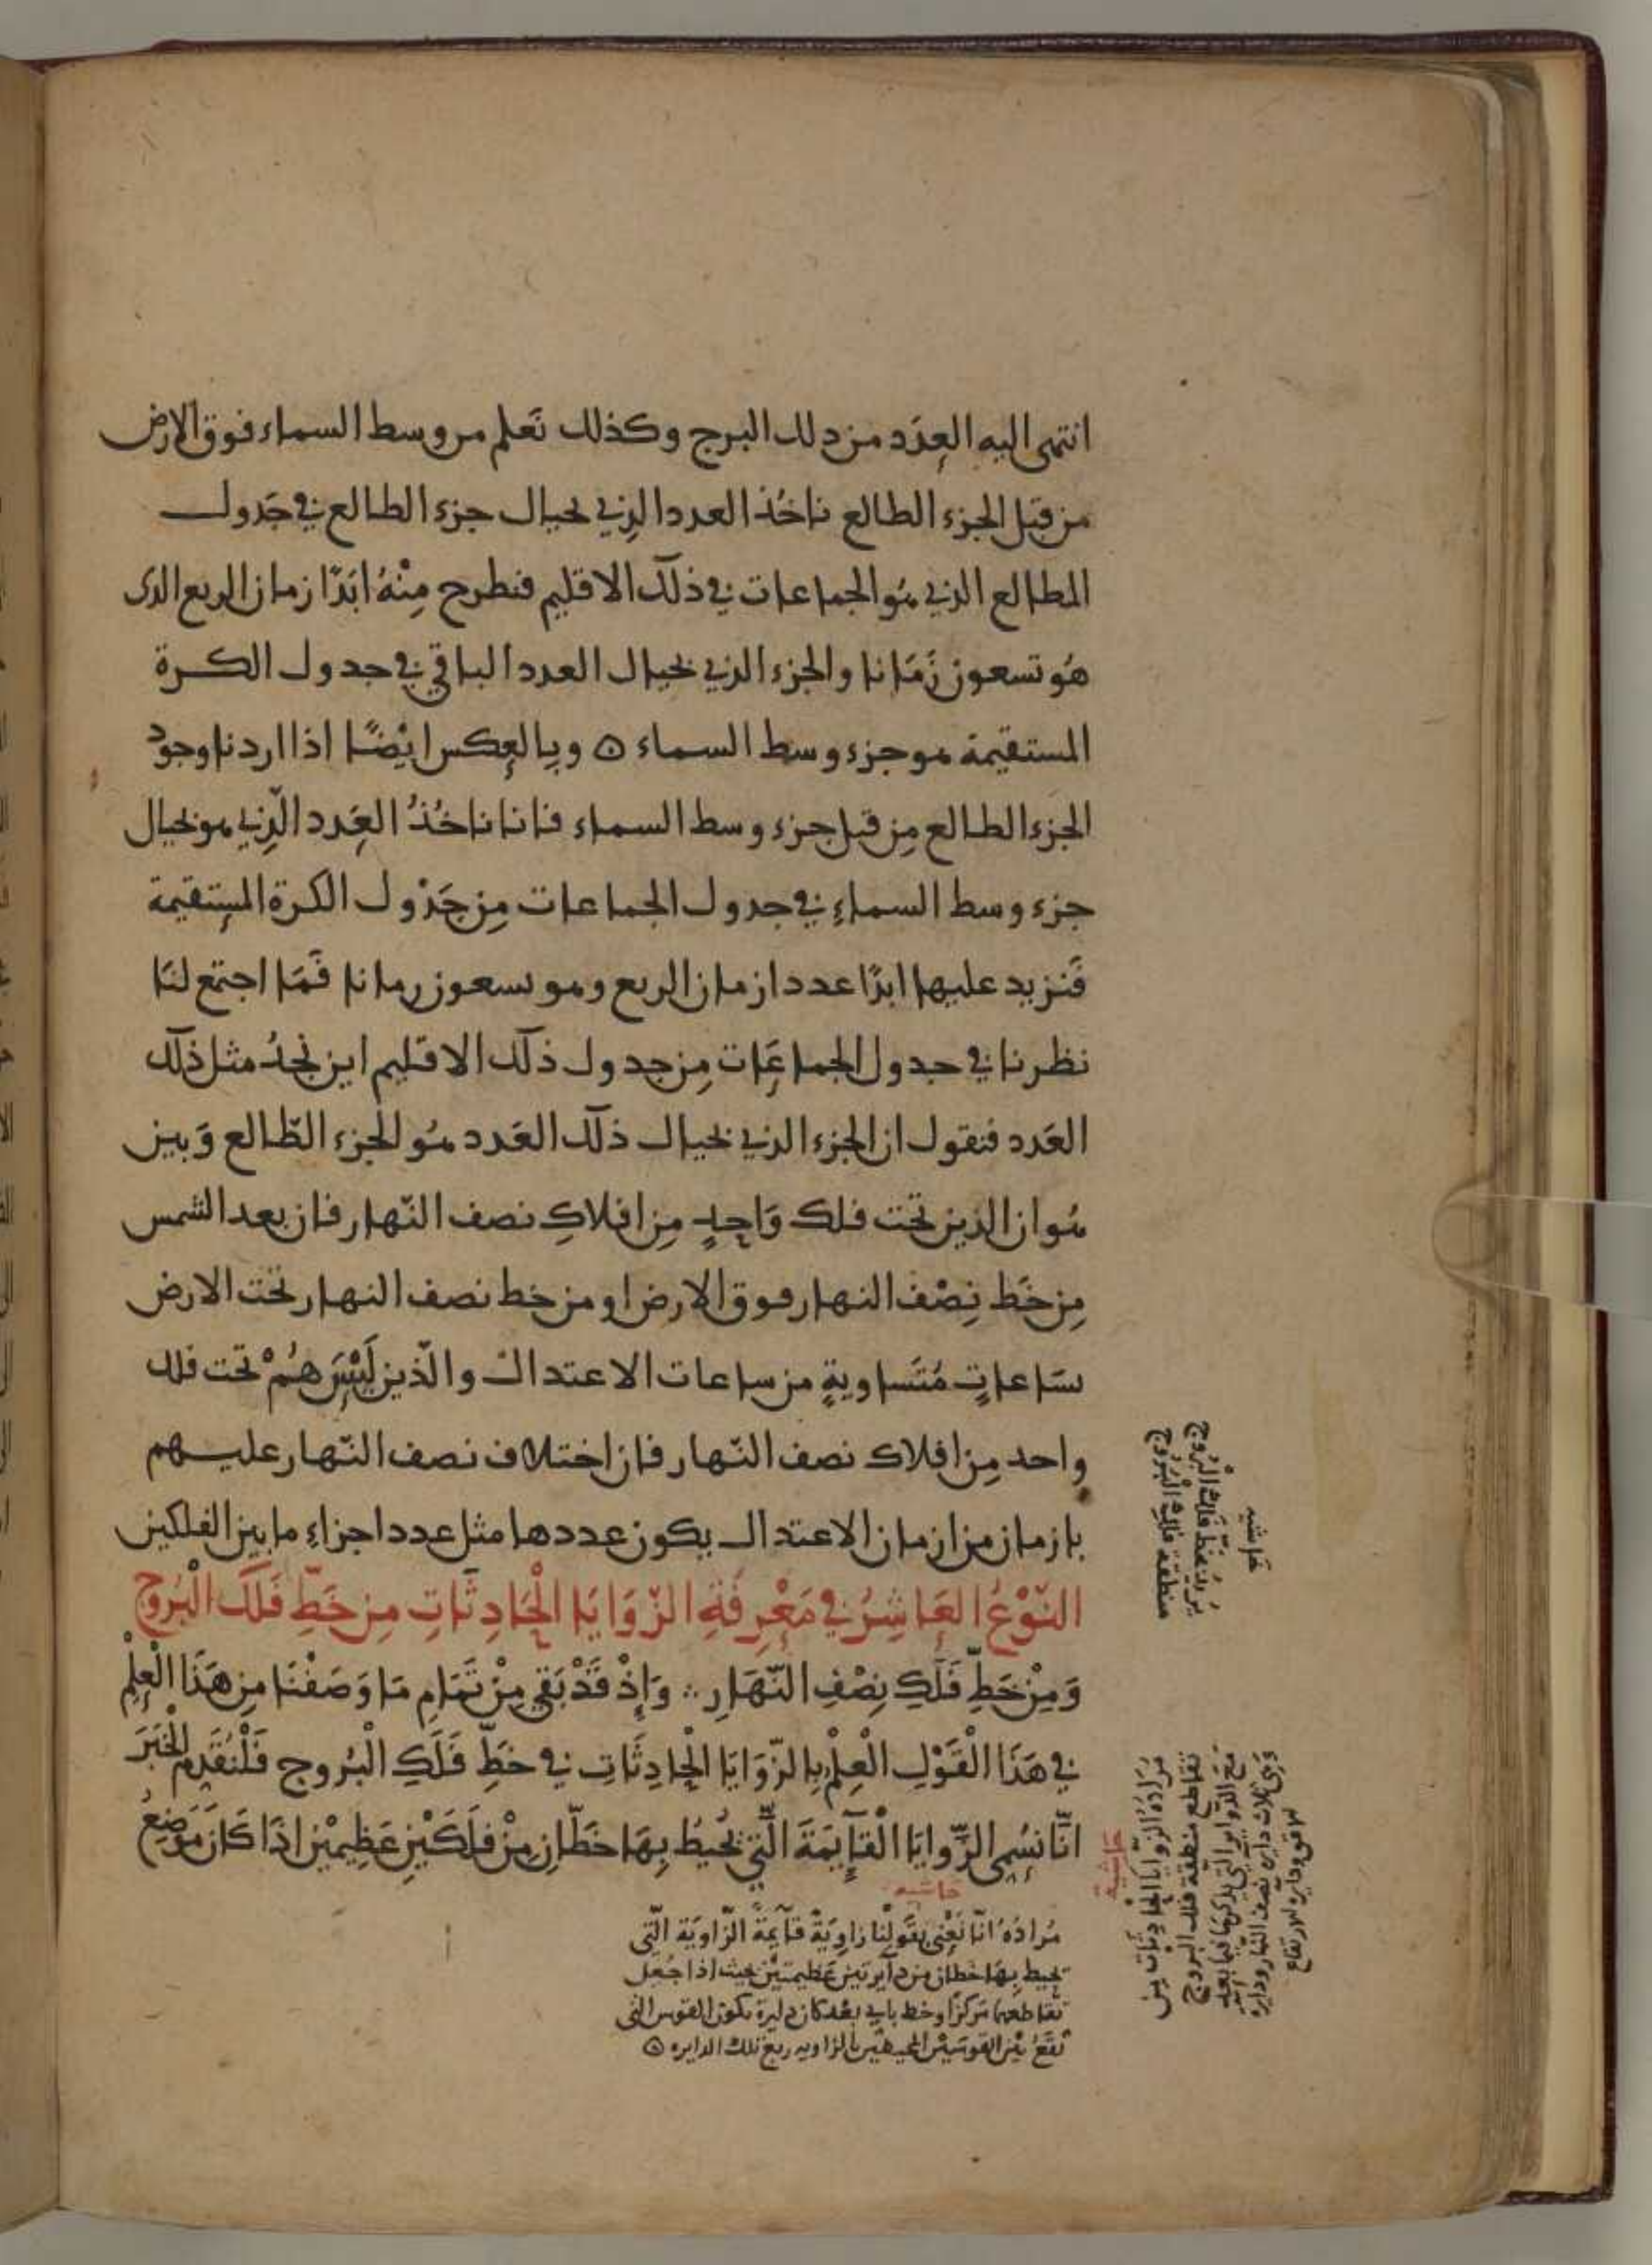 انتهى اليه العدد من ذلك البرج وكذلك نعلم من وسط السماء فوق الارض
من قبل الجزء الطالع ناخذ العدد الذي بحيال جزء الطالع في جدول
المطالع الذي هو الجماعات في ذلك الاقليم فنطرح منه ابدًا زمان الربع الذى
هو تسعون زمانا والجزء الذي بحيال العدد الباقي في جدول الكرة
المستقيمة هو جزء وسط السماء ۞ وبالعكس ايضًا اذا اردنا وجود
الجزء الطالع من قبل جزء وسط السماء فانا ناخذ العدد الذي هو بحيال
جزء وسط السماء في جدول الجماعات من جدول الكرة المستقيمة
فنزيد عليها ابدًا عدد ازمان الربع وهو تسعون زمانا فما اجتمع لنا
نظرنا في جدول الجماعات من جدول ذلك الاقليم اين نجد مثل ذلك
العدد فنقول ان الجزء الذي بحيال ذلك العدد هو الجزء الطالع وبين
هو ان الذين تحت فلك واحد من افلاك نصف النهار فان بعد الشمس
من خط نصف النهار فوق الارض او من خط نصف النهار تحت الارض
ساعات متساوية من ساعات الاعتدال والذين ليس هم تحت فلك
واحد من افلاك نصف النهار فان اختلاف نصف النهار عليهم
بازمان من ازمان الاعتدال يكون عددها مثل عدد اجزاء ما بين الفلكين
النّوع العاشر في معرفة الزّوايا الحادثات من خطّ فلك البروج
ومن خطّ فلك نصف النّهار ∴ واذ قد بقي من تمام ما وصفنا من هذا العلم
في هذا القول العلم بالزّوايا الحادثات في خطّ فلك البروج فلنقدم الخبر
انّا نسمى الزّوايا القآيمة الّتي تحيط بها خطّان من فلكين عظيمين اذا كان موضع
حاشيه
مراده انّا نعنى بقولنا زاوية قآيمة الزّاوية الّتى
تحيط بها خطان من دآيرتين عظيمتين بحيث اذا جعل
تقاطعهما مركزًا وخط باي بعد كان دايرة تكون القوس التى
تقع بين القوسين المحيطتين بالزاويه ربع تلك الدايره ۞
حاشيه
يريد بخطّ فلك البروج
منطقة فلك البروج
حاشية
مراده الزّوايا الحادثات من
تقاطع منطقة فلك البروج
مع الدّواير التى يذكرها فيما بعد
وهى ثلاث دايره نصف النهار ودايره
الافق ودايره الارتفاع